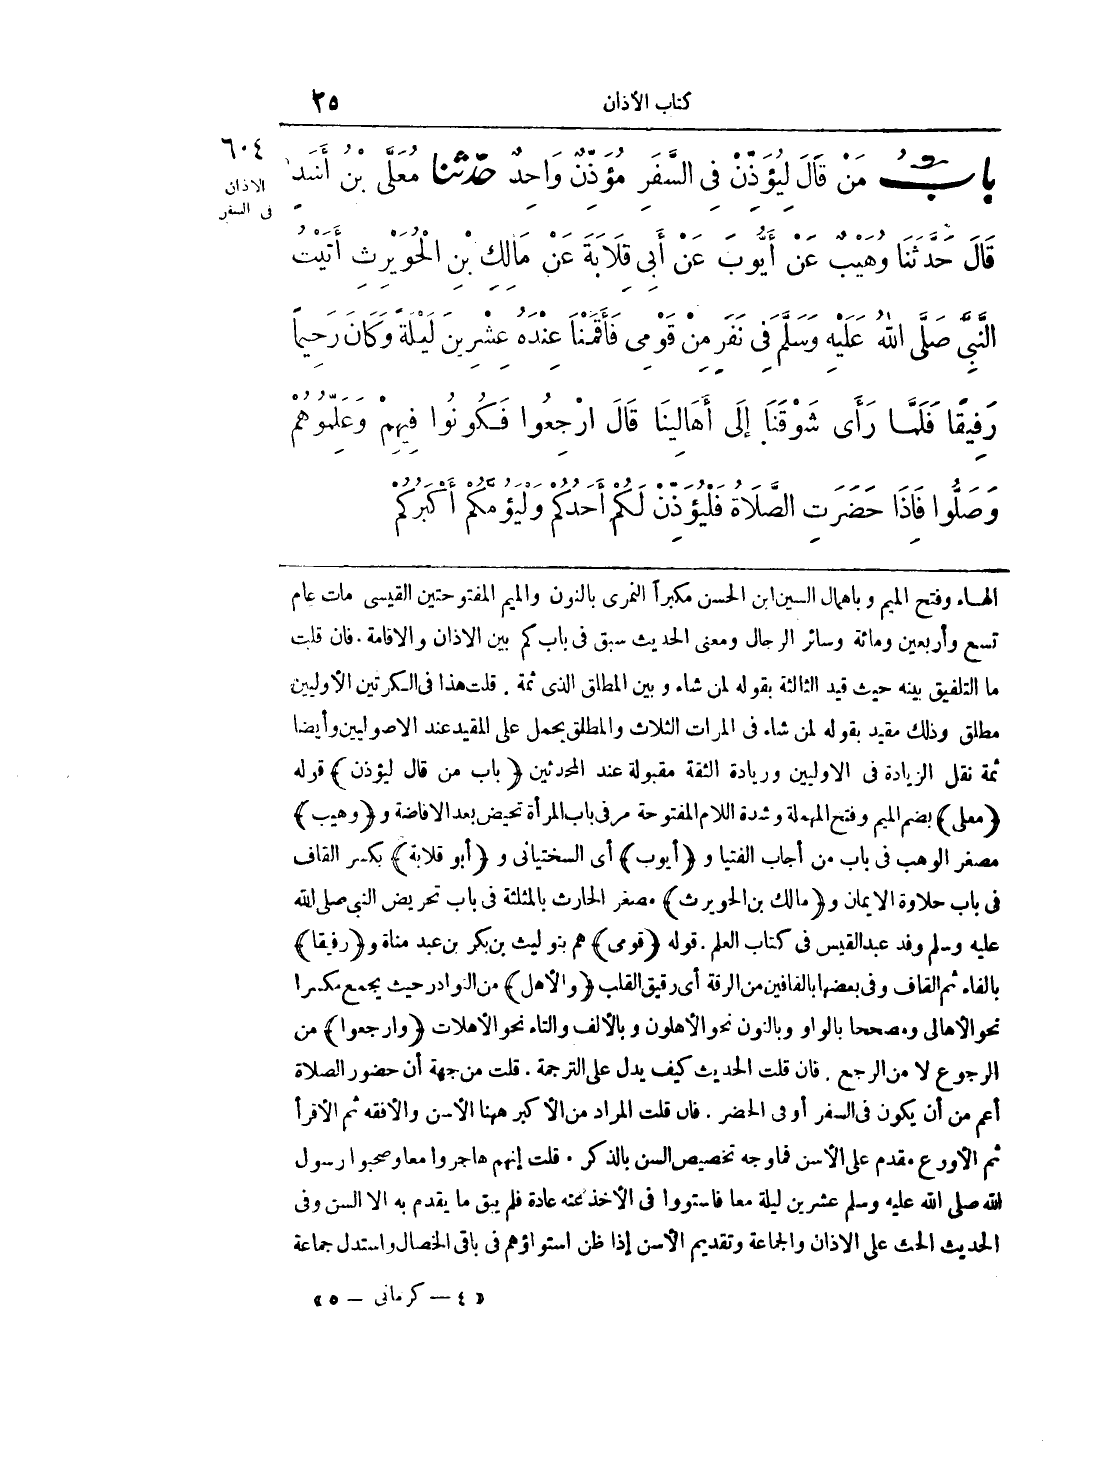 كتاب الأذان ٢٥
٦٠٤
الاذان
فى السفر
بابُ مَنْ قَالَ لِيُؤَذِّنْ فِى السَّفَرِ مُؤَذِّنٌ وَاحِدٌ حَدَّثَنَا مُعَلَّى بْنُ أَسَدٍ
قَالَ حَدَّثَنَا وُهَيْبٌ عَنْ أَيُّوبَ عَنْ أَبِى قِلَابَةَ عَنْ مَالِكِ بْنِ الْحُوَيْرِثِ أَتَيْتُ
النَّبِىَّ صَلَّى اللهُ عَلَيْهِ وَسَلَّمَ فِى نَفَرٍ مِنْ قَوْمِى فَأَقَمْنَا عِنْدَهُ عِشْرِينَ لَيْلَةً وَكَانَ رَحِيمًا
رَفِيقًا فَلَمَّا رَأَى شَوْقَنَا إِلَى أَهَالِينَا قَالَ ارْجِعُوا فَكُونُوا فِيهِمْ وَعَلِّمُوهُمْ
وَصَلُّوا فَإِذَا حَضَرَتِ الصَّلَاةُ فَلْيُؤَذِّنْ لَكُمْ أَحَدُكُمْ وَلْيَؤُمَّكُمْ أَكْبَرُكُمْ
الهاء وفتح الميم وباهمال السين ابن الحسن مكبراً النمرى بالنون والميم المفتوحتين القيسى مات عام
تسع وأربعين ومائة وسائر الرجال ومعنى الحديث سبق فى باب كم بين الاذان والاقامة . فان قلت
ما التلفيق بينه حيث قيد الثالثة بقوله لمن شاء و بين المطلق الذى ثمة . قلت هذا فى الكرتين الأوليين
مطلق وذلك مقيد بقوله لمن شاء فى المرات الثلاث والمطلق يحمل على المقيد عند الاصوليين وأيضا
ثمة نقل الزيادة فى الاوليين وزيادة الثقة مقبولة عند المحدثين ﴿باب من قال ليؤذن﴾ قوله
﴿معلى﴾ بضم الميم وفتح المهملة وشدة اللام المفتوحة مر فى باب المرأة تحيض بعد الافاضة و﴿وهيب﴾
مصغر الوهب فى باب من أجاب الفتيا و﴿أيوب﴾ أى السختيانى و﴿أبو قلابة﴾ بكسر القاف
فى باب حلاوة الايمان و﴿مالك بن الحويرث﴾ مصغر الحارث بالمثلثة فى باب تحريض النبى صلى الله
عليه وسلم وفد عبدالقيس فى كتاب العلم . قوله ﴿قومى﴾ هم بنو ليث بن بكر بن عبد مناة و﴿رفيقا﴾
بالفاء ثم القاف وفى بعضها بالقافين من الرقة أى رقيق القلب ﴿والأهل﴾ من النوادر حيث يجمع مكسرا
نحو الأهالى ومصححا بالواو وبالنون نحو الأهلون وبالألف والتاء نحو الأهلات ﴿وارجعوا﴾ من
الرجوع لا من الرجع . فان قلت الحديث كيف يدل على الترجمة . قلت من جهة أن حضور الصلاة
أعم من أن يكون فى السفر أو فى الحضر . فان قلت المراد من الأكبر ههنا الأسن والأفقه ثم الأقرأ
ثم الأورع مقدم على الأسن فما وجه تخصيص السن بالذكر . قلت إنهم هاجروا معا وصحبوا رسول
الله صلى الله عليه وسلم عشرين ليلة معا فاستووا فى الأخذ عنه عادة فلم يبق ما يقدم به الا السن وفى
الحديث الحث على الاذان والجماعة وتقديم الأسن إذا ظن استواؤهم فى باقى الخصال واستدل جماعة
« ٤ — كرمانى — ٥ »